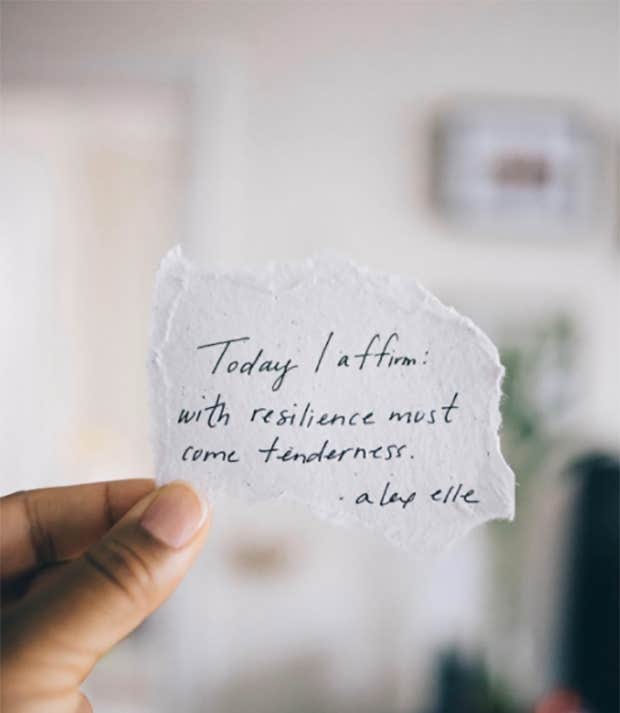 Today I affirm:
with resilience must
come tenderness.
. alex elle